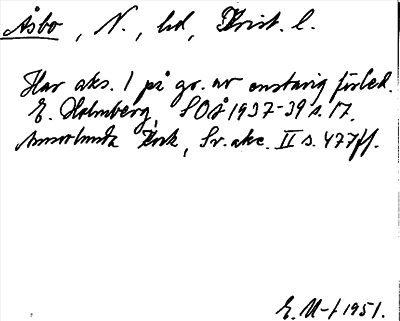 Åsbo, N., hd, Krist. l.
Har aks. 1 på gr. av enstavig förled.
E. Holmberg, SOÅ 1937-39 s. 17.
Annorlunda Kock, Sv. akc. II s. 477 ff.
E. M-f 1951.